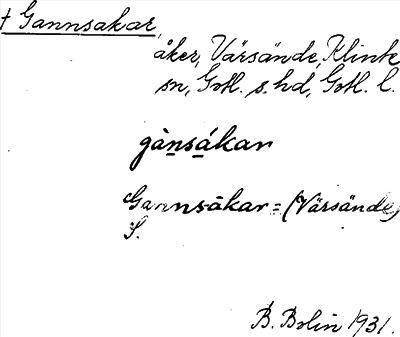 † Gannsakar,
åker, Värsände, Klinte
sn, Gotl. s. hd, Gotl. l.
gànsákar
Gannsåkar = (Värsände)
S.
B. Bolin 1931.